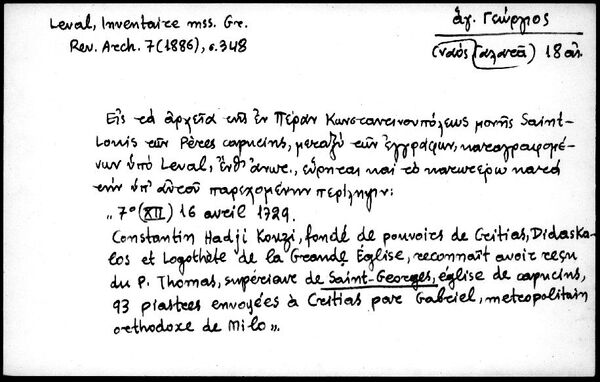 Leval, Inventaire mss. Gr.
Rev. Arch. 7 (1886), σ. 348
ἁγ. Γεώργιος
(ναός Γαλατᾶ) 18 αἰ.
Εἰς τά ἀρχεῖα τῆς ἐν Πέραν Κωνσταντινουπόλεως μονῆς Saint-
Louis τῶν Pères capucins, μεταξύ τῶν ἐγγράφων, καταγραφομέ-
νων ὑπό Leval, ἔνθ' ἄνωτ., εὕρηται καί τό κατωτέρω κατά
τήν ὑπ' αὐτοῦ παρεχομένην περίληψιν:
„ 7º (XII) 16 avril 1729.
Constantin Hadji Kouzi, fondé de pouvoirs de Critias, Didaska-
los et Logothète de la Grande Église, reconnaît avoir reçu
du P. Thomas, supérieur de Saint-Georges, église de capucins,
93 piastres envoyées à Critias par Gabriel, metropolitain
orthodoxe de Milo ».